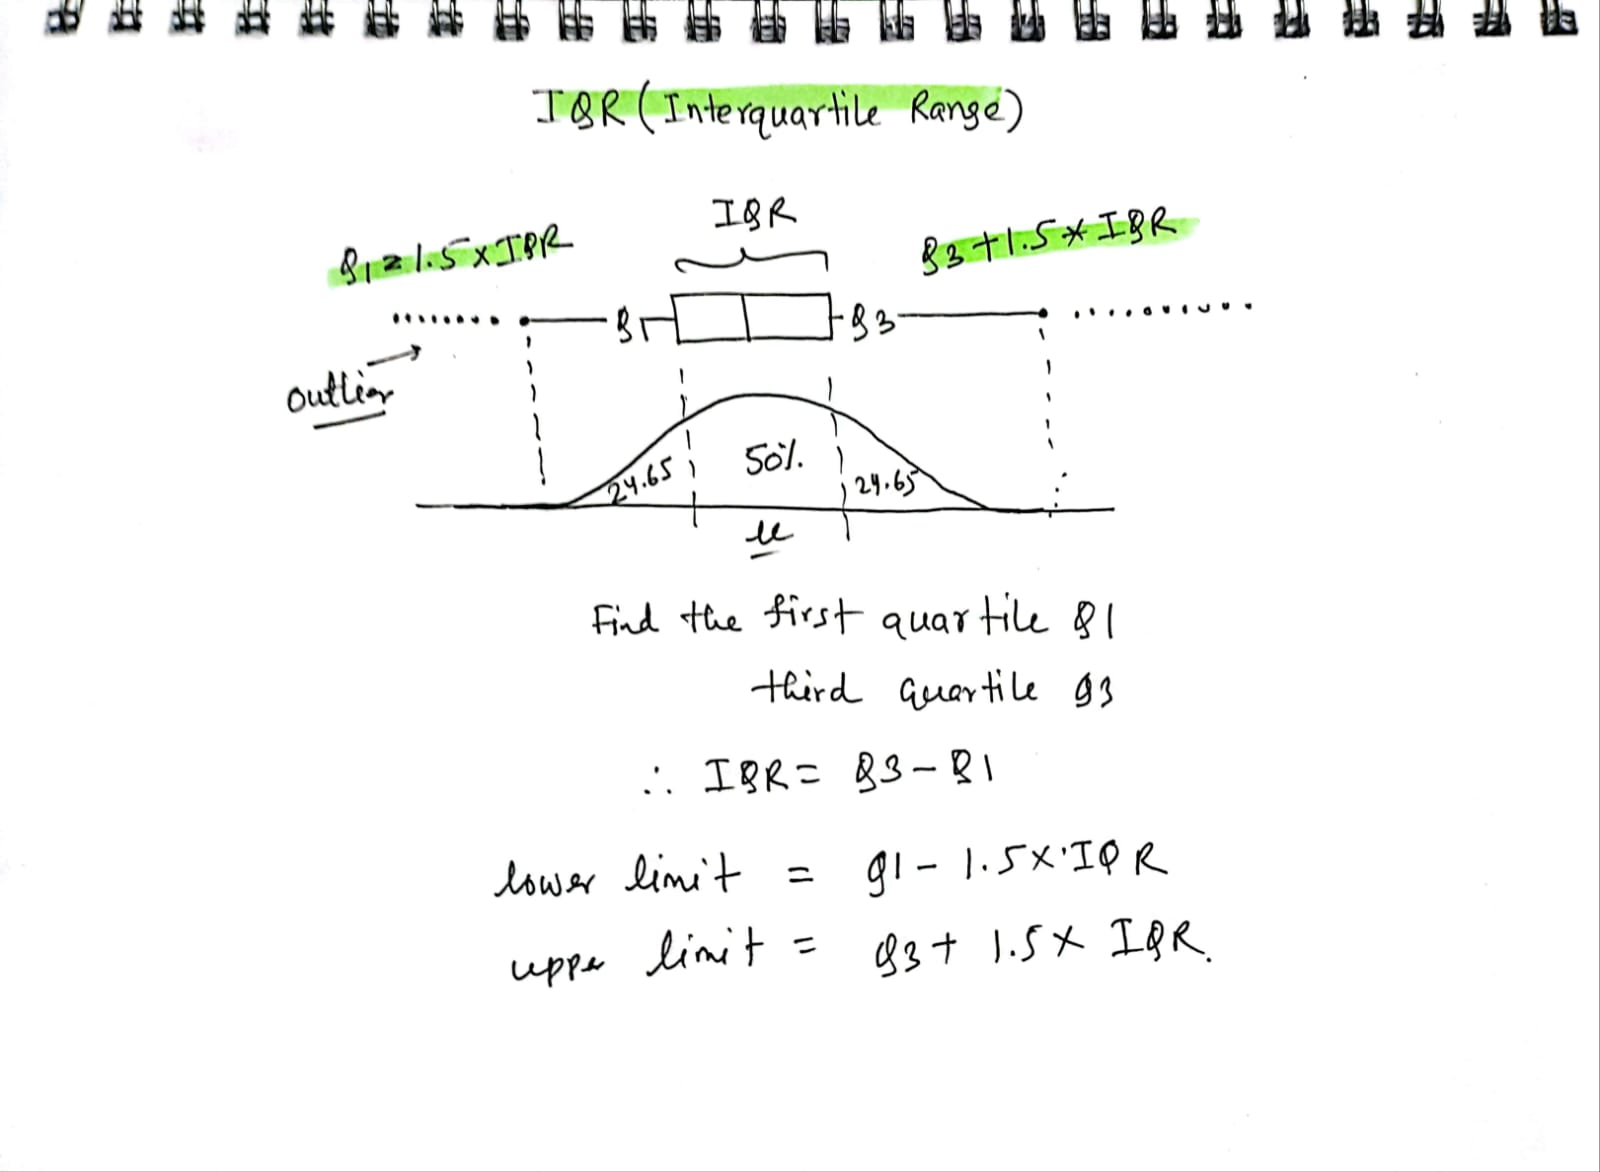 IQR (Interquartile Range)
IQR
Q1 = 1.5 x IQR
Q3 + 1.5 * IQR
Q1
Q3
outlier
24.65
50%
24.65
μ
Find the first quartile Q1
third Quartile Q3
∴ IQR = Q3 - Q1
lower limit = Q1 - 1.5 x IQR
upper limit = Q3 + 1.5 x IQR.